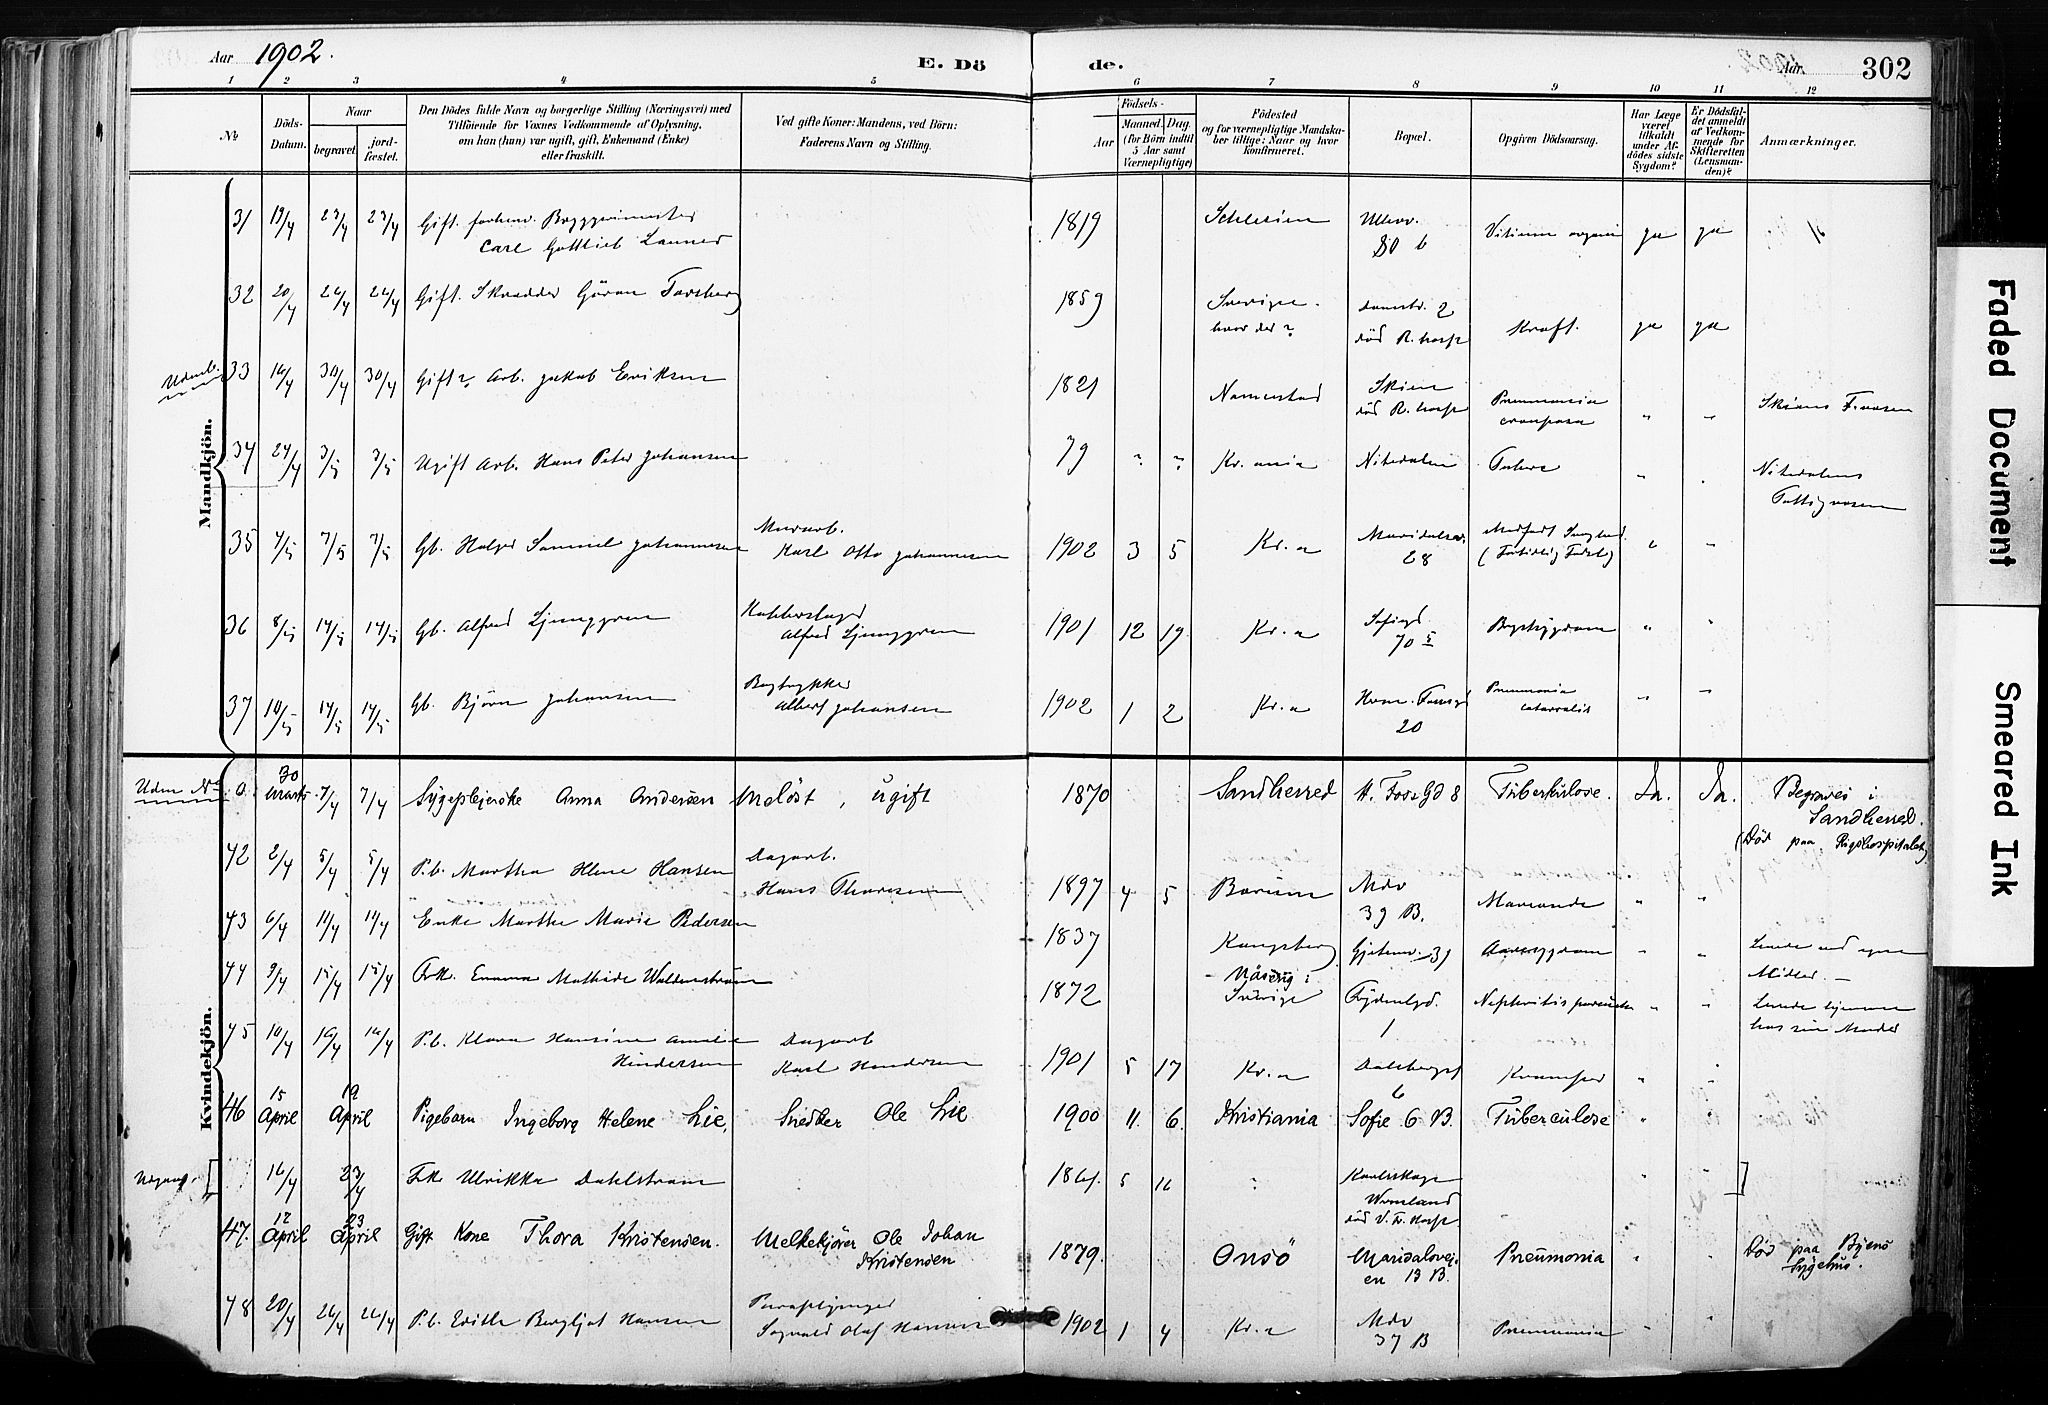 Aar 1902.
E. Dö
de.
Aar
302
1 2 3 4 5 6 7 8 9 10 11 12
No
Döds-Datum.
Naar
begravet.
jordfæstet.
Den Dödes fulde Navn og borgerlige Stilling (Næringsvei) med
Tilföiende for Voxnes Vedkommende af Oplysning,
om han (hun) var ugift, gift, Enkemand (Enke)
eller fraskilt.
Ved gifte Koner: Mandens, ved Börn:
Faderens Navn og Stilling.
Födsels-
Aar
Maaned Dag
(for Börn indtil
5 Aar samt
Værnepligtige)
Födested
og for værnepligtige Mandska-
ber tillige: Naar og hvor
Konfirmeret.
Bopæl.
Opgiven Dödsaarsag.
Har Læge
været
tilkaldt
under Af-
dödes sidste
Sygdom?
Er Dödsfal-
det anmeldt
af Vedkom-
mende for
Skifteretten
(Lensman-
den)?
Anmærkninger.
Mandkjön.
31 19/4 23/4 23/4 Gift. forhenv. Byggmester
Carl Gottlieb 1819 Schlesien Ullevv. 80 b Vitium organi ja ja
32 20/4 26/4 26/4 Gift. Skrædder Göran Forsberg 1859 Sverige. hvor der? 2 död R.hosp Kræft. ja ja
Udenb. 33 16/4 30/4 30/4 Gift? Arb. Jakob Eriksen 1821 Skien död R.hosp Pneumonia crouposa " " Skiens F.væsen
34 24/4 3/5 3/5 Ugift Arb. Hans Peter Johansen 79 ? ? Kr.ania Nitedalen Tuberc " " Nitedalens
Fattigvæsen
35 4/5 7/5 7/5 Gb. Holger Samuel Johannesen Murarb.
Karl Otto Johannesen 1902 3 5 Kr.a Maridalsv. 28 Medfødt Svaghed.
(Fortidlig Fødsel) " "
36 8/5 14/5 14/5 Gb. Alfred Ljunggren Kobberslager
Alfred Ljunggren 1901 12 19 Kr.a Sofiegd. 70 5 Brystsygdom " "
37 10/5 14/5 14/5 Gb. Björn Johansen Bogtrykker
Albert Johansen 1902 1 2 Kr.a 20 Pneumonia catarrhalis " "
Kvindekjön.
Uden No 0. 30 Marts. 7/4 7/4 Sygepleierske Anna Andersen Meløst, ugift 1870 Sandherred N. Fossgd 8 Tuberkulose. Ja. Ja. Begraves i
Sandherred.
(Død paa Rigshospitalet)
42 2/4 5/4 5/4 P.b. Martha Helene Hansen Dagarb.
Hans Thoresen 1897 4 5 Bærum Mdv 39 B. " "
43 6/4 11/4 11/4 Enke Marthe Marie Pedersen 1837 Kongsberg Gjetemv. 31 " " Levede ved egne
Midler. —
44 9/4 15/4 15/4 Frk. Emma Mathilde Waldenström 1872 Sverige Frydenlgd. 1 Nephritis " " Levede hjemme
hos sin Moder
45 10/4 16/4 16/4 P.b. Klara Hansine Amalie
Hindersen Dagarb
Karl Hindersen 1901 5 17 Kr.a Dalsbergst 6 Kramper " "
46 15 April 19 April Pigebarn Ingeborg Helene Lie, Snedker Ole Lie 1900 11. 6. Kristiania Sofie G B. Tuberculose "
16/4 23/4 Frk. Ulrikka Dahlström 1861. 5 16 Karlskoga
Wermland
död V. Fr. Hosp. "
47. 12 April 23 April Gift Kone Thora Kristensen. Melkekjører Ole Johan
Kristensen 1879. Onsö Maridalsvei-
en 13 B. Pneumonia " " Død paa Byens
Sygehus.
48 20/4 26/4 26/4 P.b. Edith Bergljot Hansen Sigvald Olaf Hansen 1902 1 4 Kr.a Mdv 37 B Pneumonia
Faded Document
Smeared Ink